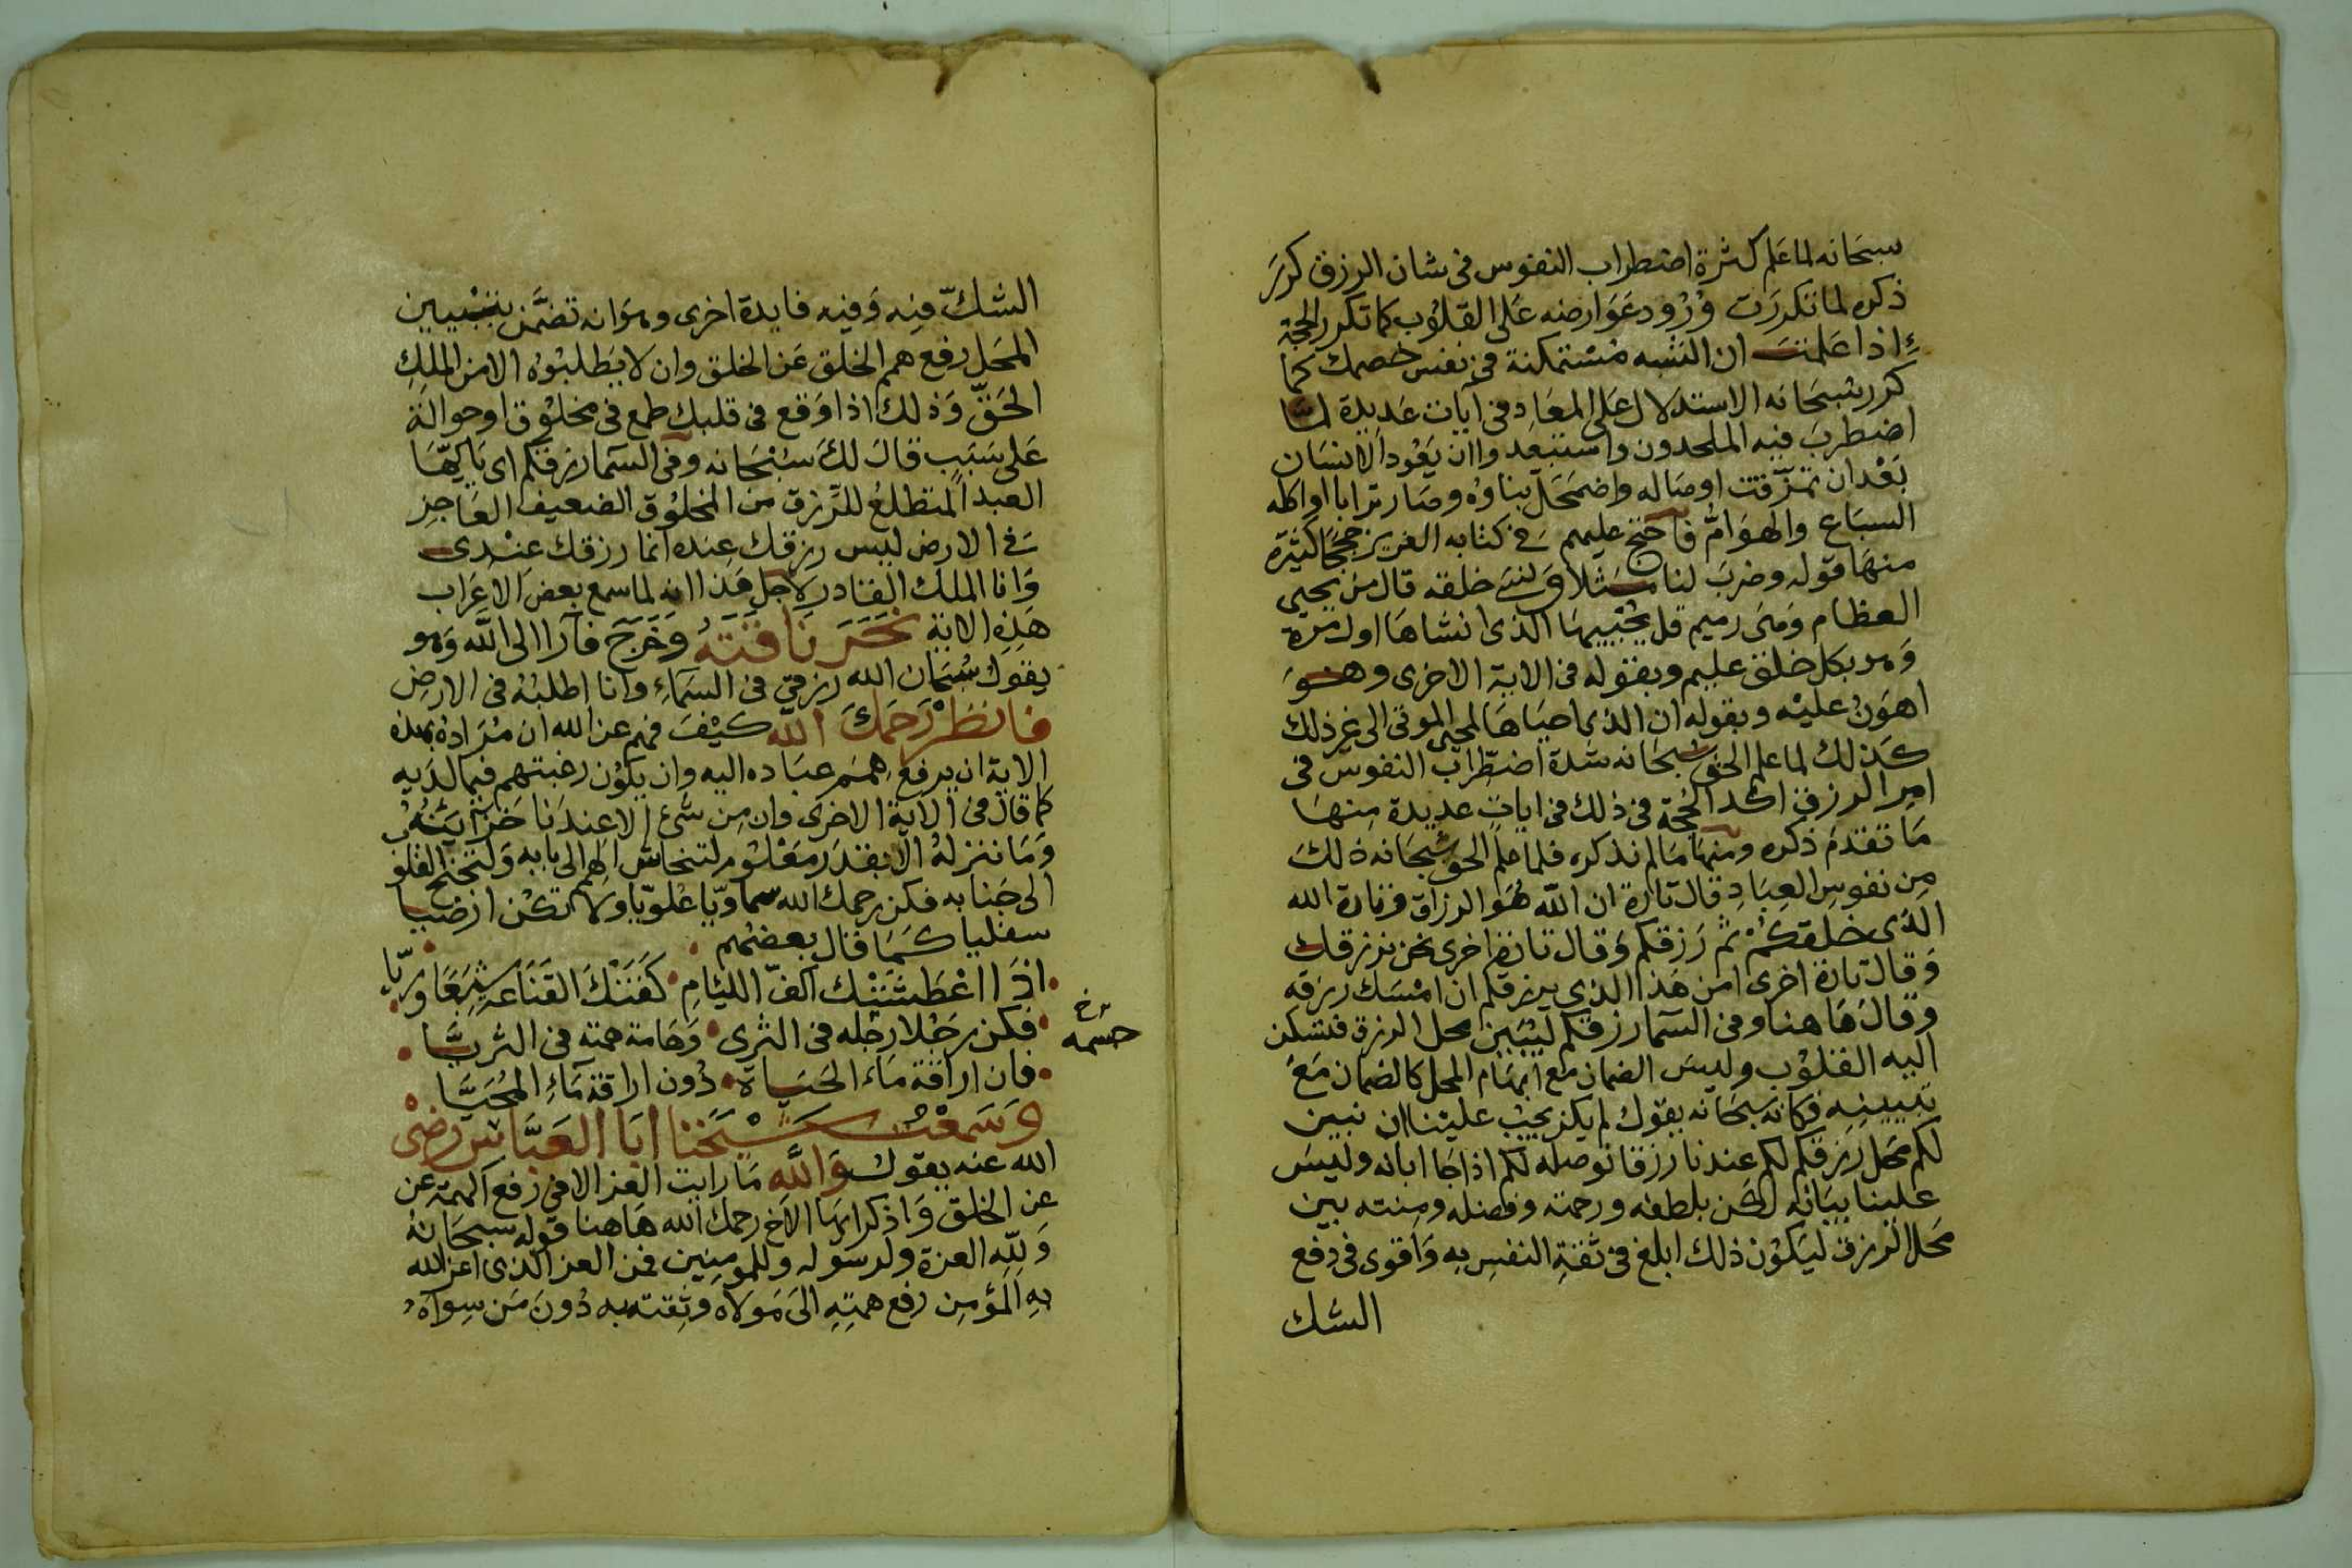 سبحانه لما علم كثرة اضطراب النفوس في شان الرزق كرر
ذكره لما تكررت ورود عوارضه على القلوب كما تكرر الحجة
اذا علمت ان الشبه مستمكنة في نفس خصمك كما
كرر سبحانه الاستدلال على المعاد في آيات عديدة لما
اضطرب فيه الملحدون واستبعدوا ان يعود الانسان
بعد ان تمزقت اوصاله واضمحل بناوه وصار ترابا او اكله
السباع والهوام فاحتج عليهم في كتابه العزيز حججا كثيرة
منها قوله وضرب لنا مثلا ونسي خلقه قال من يحيى
العظام وهي رميم قل يحييها الذي انشاها اول مرة
وهو بكل خلق عليم وبقوله في الاية الاخرى وهو
اهون عليه وبقوله ان الذي احياها لمحيي الموتى الى غير ذلك
كذلك لما علم الحق سبحانه شدة اضطراب النفوس في
امر الرزق اكد الحجة في ذلك في ايات عديدة منها
ما تقدم ذكره ومنها ما لم نذكره فلما علم الحق سبحانه ذلك
من نفوس العباد قال تارة ان الله هو الرزاق وتارة الله
الذي خلقكم ثم رزقكم وقال تارة اخرى نحن نرزقك
وقال تارة اخرى امن هذا الذي يرزقكم ان امسك رزقه
وقال هاهنا وفي السما رزقكم ليبين محل الرزق فتسكن
اليه القلوب وليس الضمان مع ابهام المحل كالضمان مع
تبيينه فكانه سبحانه يقول لم يكن يجب علينا ان نبين
لكم محل رزقكم لكم عندنا رزقا نوصله لكم اذا جا ابانه وليس
علينا بيانه لكن بلطفه ورحمته وفضله ومنته بين
محل الرزق ليكون ذلك ابلغ في ثقة النفس به واقوى في دفع
الشك
الشك فيه وفيه فايدة اخرى وهو انه تضمن بتبيين
المحل رفع همم الخلق عن الخلق وان لا يطلبوه الا من الملك
الحق وذلك اذا وقع في قلبك طمع في مخلوق او حوالة
على سبب قال لك سبحانه وفي السما رزقكم اي ياايها
العبد المتطلع للرزق من المخلوق الضعيف العاجز
في الارض ليس رزقك عنده انما رزقك عندي
وانا الملك القادر لاجل هذا انه لما سمع بعض الاعراب
هذه الاية نحر ناقته وخرج فارا الى الله وهو
يقول سبحان الله رزقي في السماء وانا اطلبه في الارض
فانظر رحمك الله كيف فهم عن الله ان مراده بهذه
الاية ان يرفع همم عباده اليه وان يكون رغبتهم فيما لديه
كما قال في الاية الاخرى وان من شئ الا عندنا خزائنه
وما ننزله الا بقدر معلوم لتنحاش الهمم الى بابه ولتجنح القلوب
الى جنابه فكن رحمك الله سماويا علويا ولا تكن ارضيا
سفليا كما قال بعضهم
اذا اعطشتنك اكف الليام كفتك القناعة شبعا وريا
فكن رجلا رجله في الثرى وهامة همته في الثريا
فان اراقة ماء الحياة دون اراقة ماء المحيا
وسمعت شيخنا ابا العباس رضي
الله عنه يقول والله ما رايت العز الا في رفع الهمة عن
عن الخلق واذكر ايها الاخ رحمك الله هاهنا قوله سبحانه
ولله العزة ولرسوله وللمومنين فمن العز الذي اعز الله
به المؤمن رفع همته الى مولاه وثقته به دون من سواه